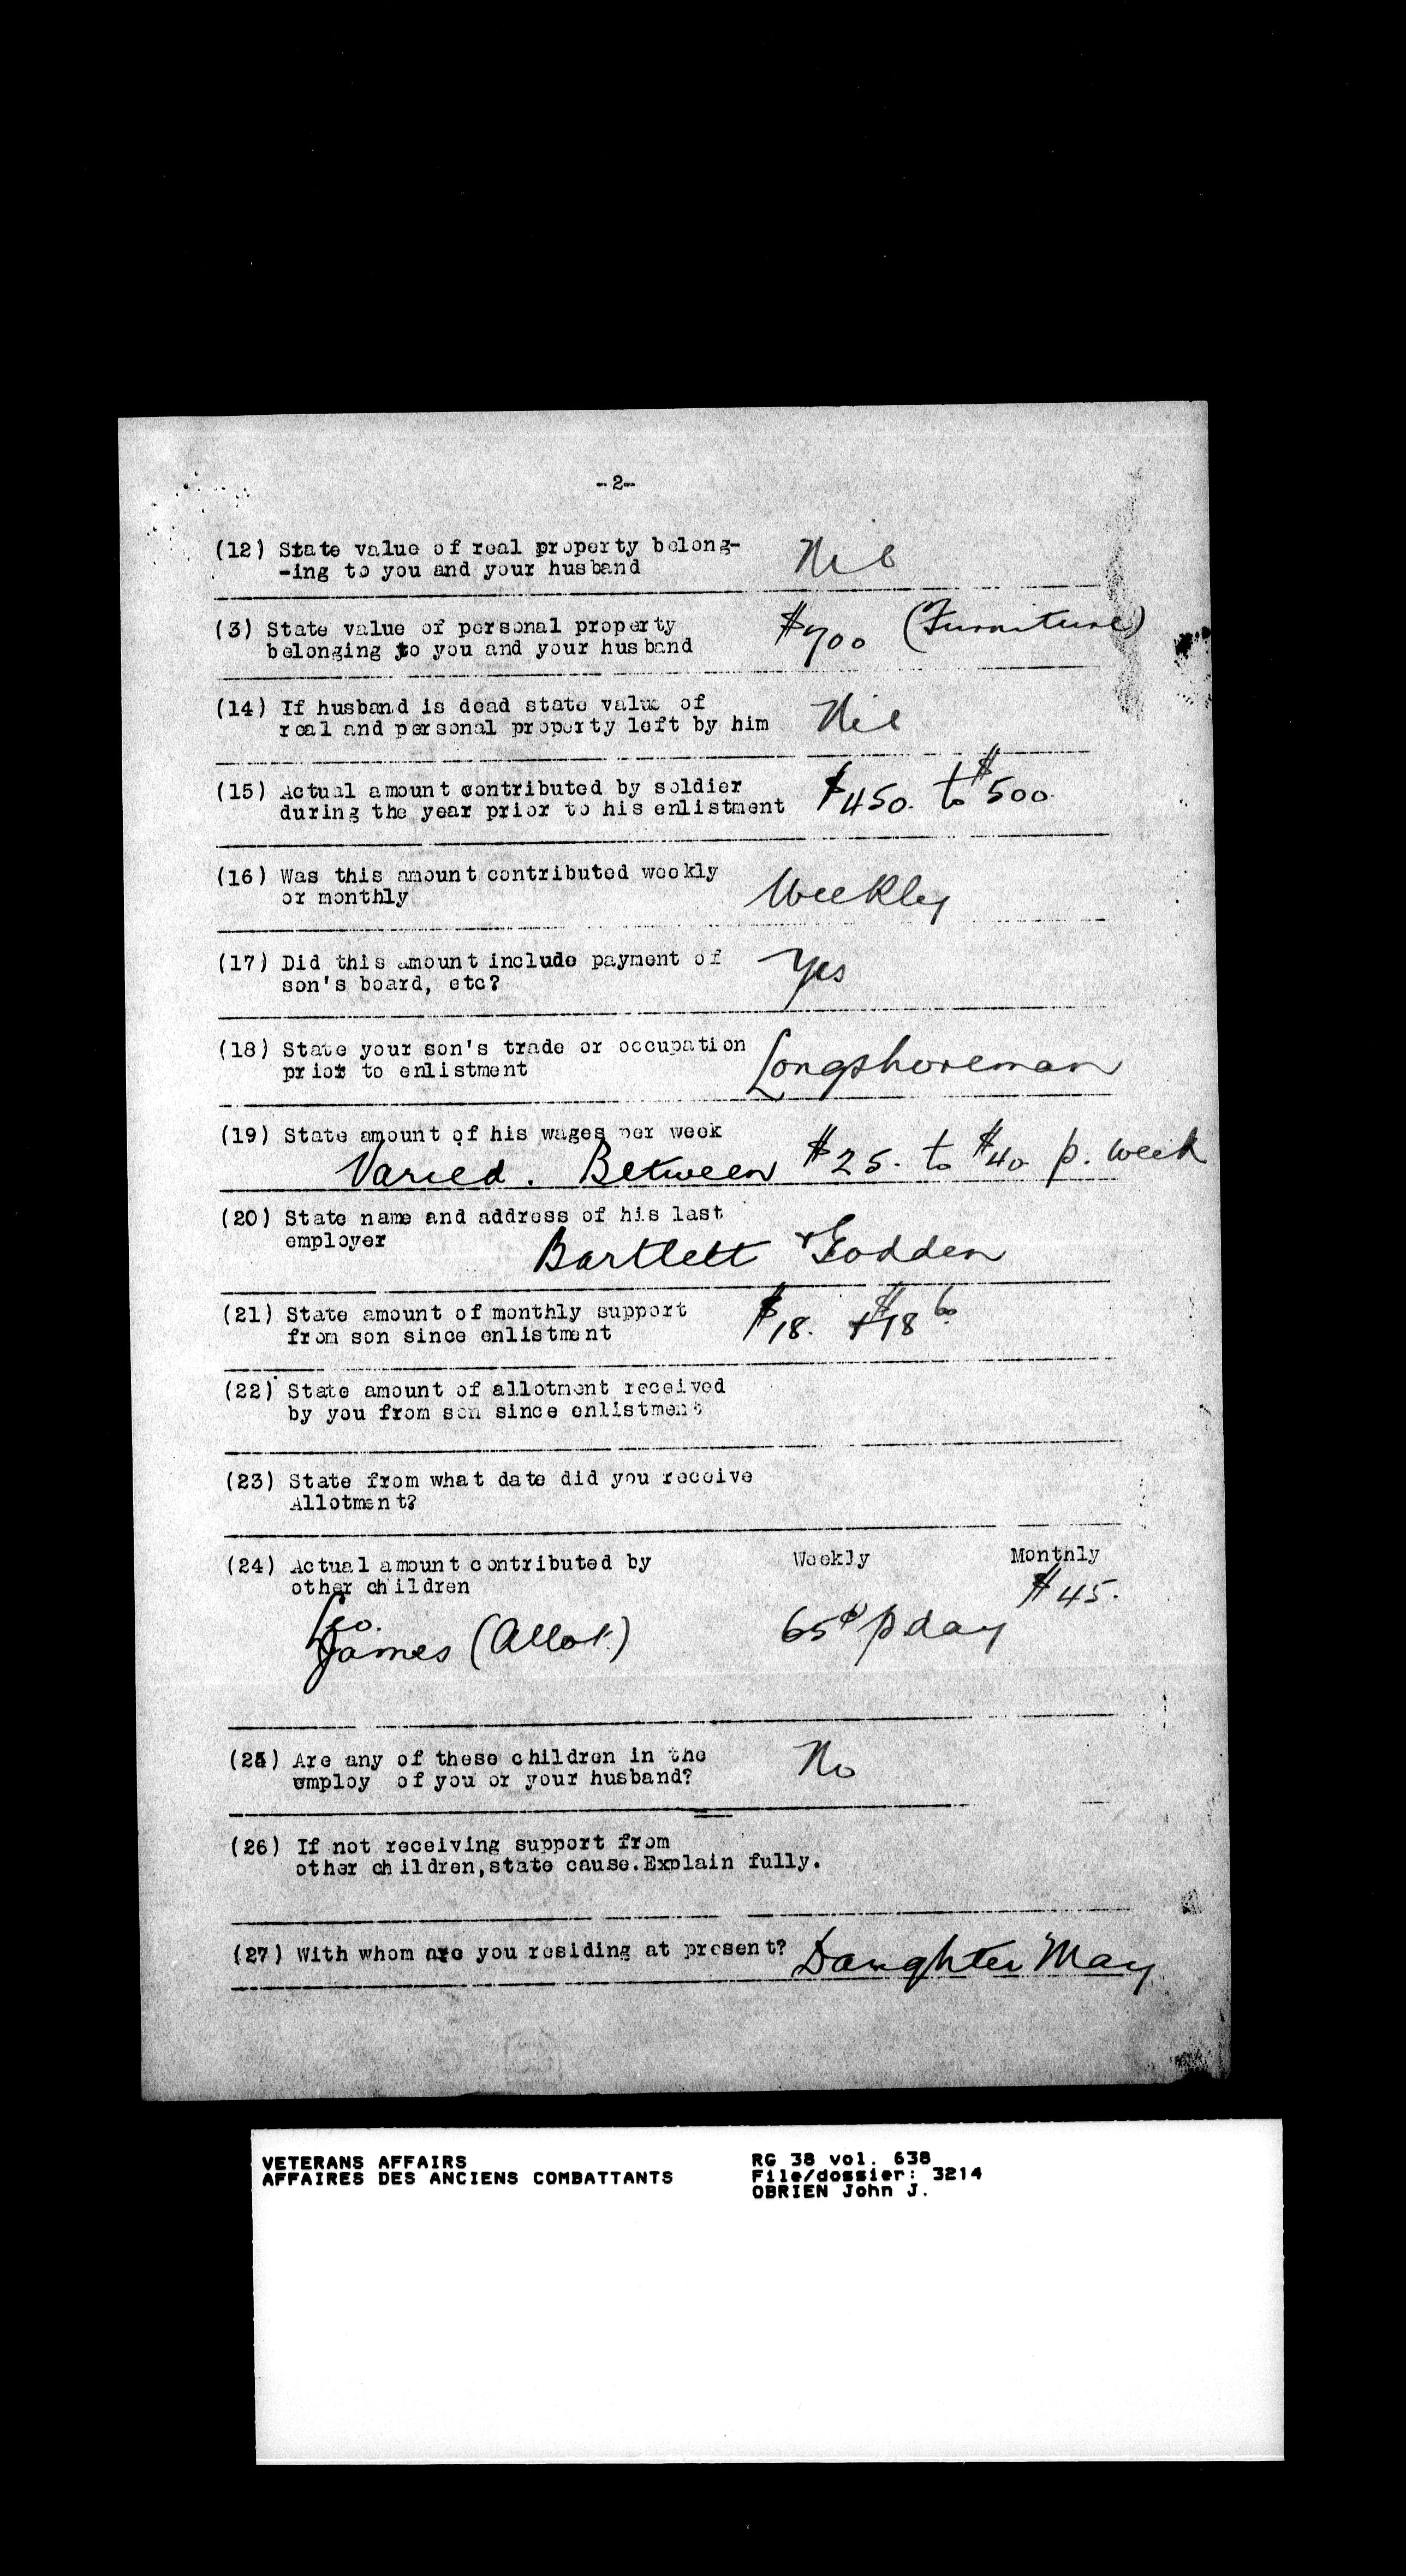 -2-
(12) State value of real property belong-
-ing to you and your husband
Nil
(3) State value of personal property
belonging to you and your husband
$700 (Furniture)
(14) If husband is dead state value of
real and personal property left by him
Nil
(15) Actual amount contributed by soldier
during the year prior to his enlistment
$450. to $500.
(16) Was this amount contributed weekly
or monthly
Weekly
(17) Did this amount include payment of
son's board, etc?
Yes
(18) State your son's trade or occupation
prior to enlistment
Longshoreman
(19) State amount of his wages per week
Varied. Between $25. to $40 p. week
(20) State name and address of his last
employer
Bartlett & Godden
(21) State amount of monthly support
from son since enlistment
$18.
(22) State amount of allotment received
by you from son since enlistment
(23) State from what date did you receive
Allotment?
(24) Actual amount contributed by
other children
Weekly Monthly
$45.
Leo.
James (Allot.) 65¢ p day
(25) Are any of these children in the
employ of you or your husband?
No
(26) If not receiving support from
other children,state cause.Explain fully.
(27) With whom are you residing at present?
Daughter May
VETERANS AFFAIRS
AFFAIRES DES ANCIENS COMBATTANTS
RG 38 vol. 638
File/dossier: 3214
OBRIEN John J.